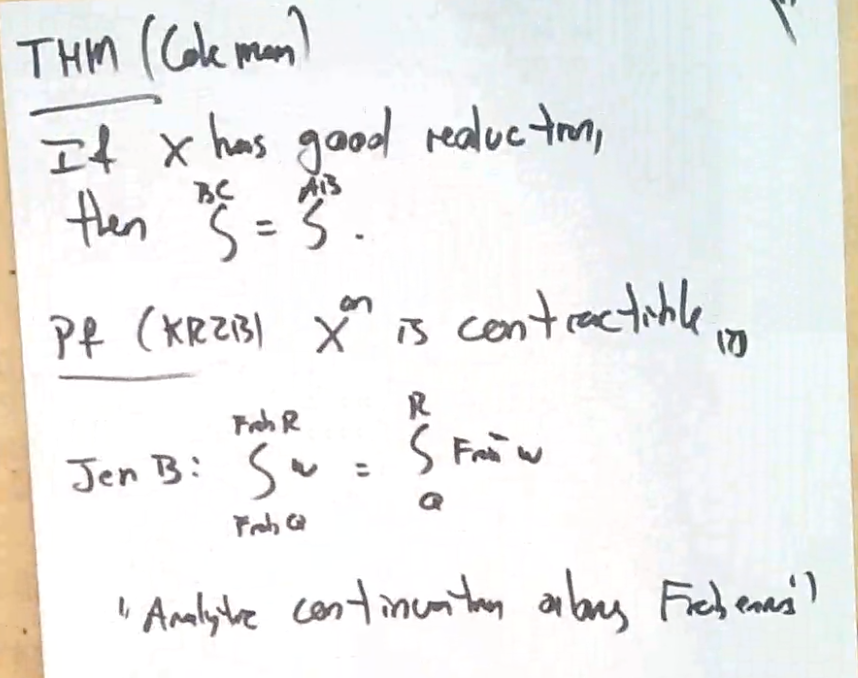 THM (Coleman)
If X has good reduction,
then BC∫ = Ab∫.
Pf (KRZB) X^an is contractible
Jen B: ∫_{Frob Q}^{Frob R} ω = ∫_Q^R Frob* ω
"Analytic continuation along Frobenius"